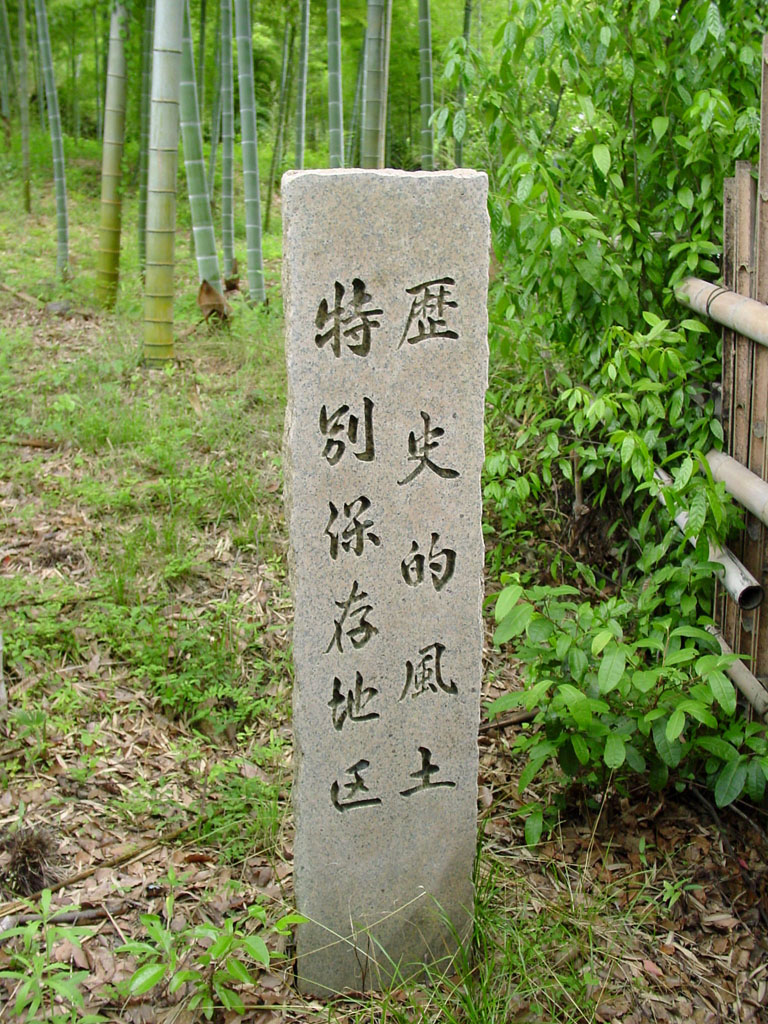 歴史的風土
特別保存地区